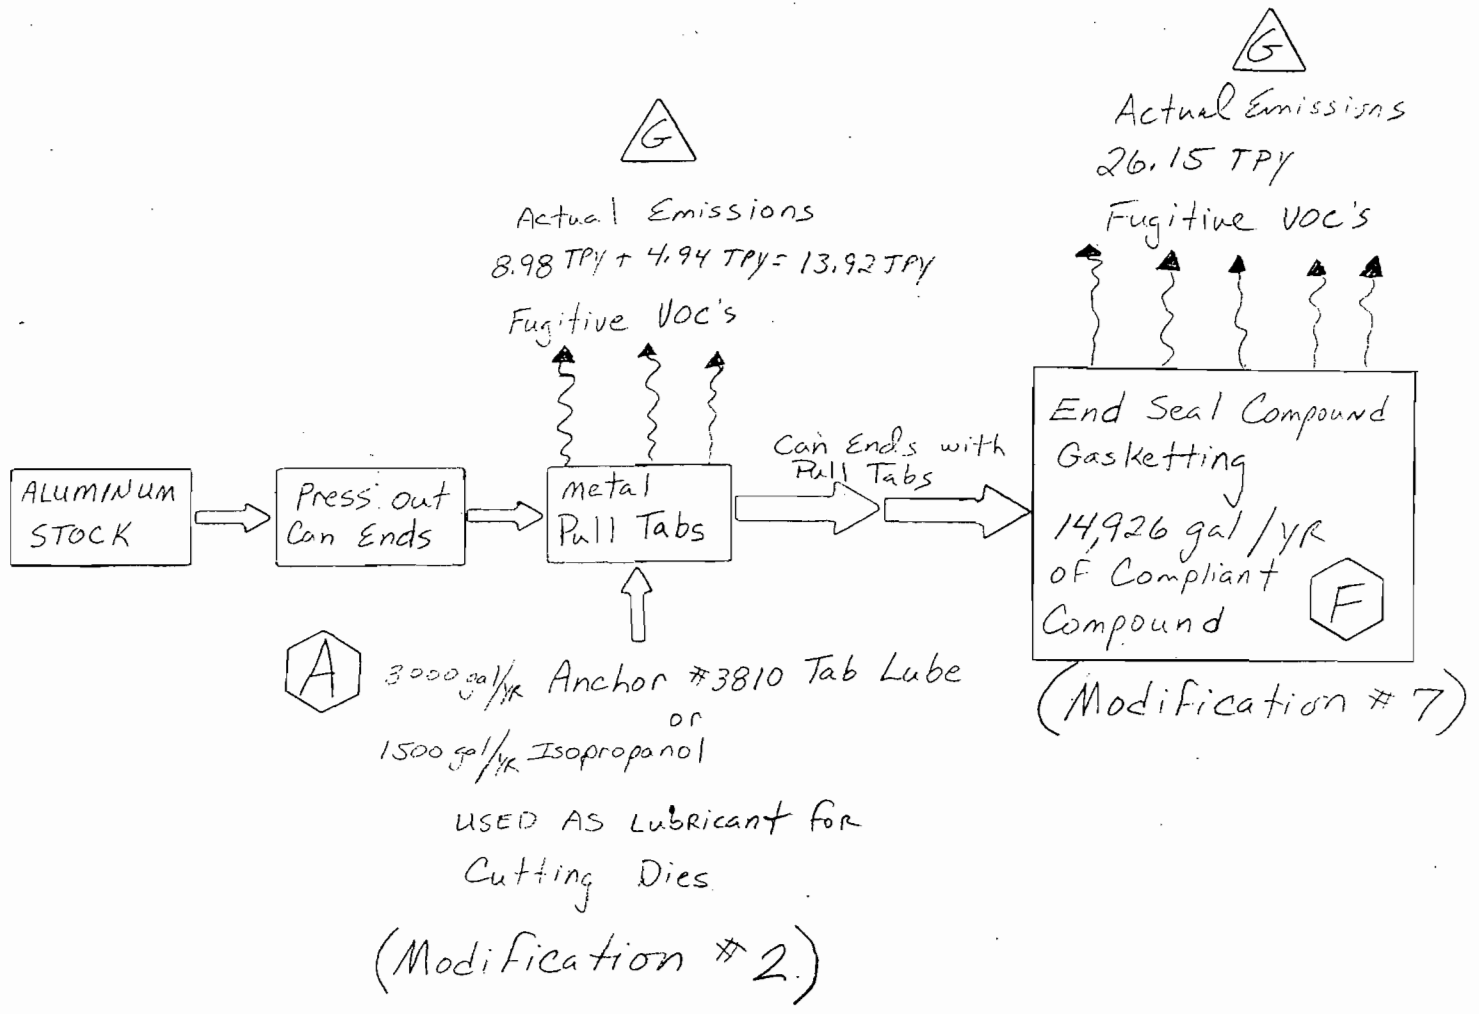 G
Actual Emissions
26.15 TPY
Fugitive VOC's
G
Actual Emissions
8.98 TPY + 4.94 TPY = 13.92 TPY
Fugitive VOC's
ALUMINUM
STOCK
Press out
Can Ends
Metal
Pull Tabs
Can Ends with
Pull Tabs
End Seal Compound
Gasketting
14,926 gal/YR
OF Compliant
Compound
F
(Modification #7)
A
3000 gal/YR Anchor #3810 Tab Lube
or
1500 gal/YR Isopropanol
USED AS Lubricant for
Cutting Dies
(Modification #2.)